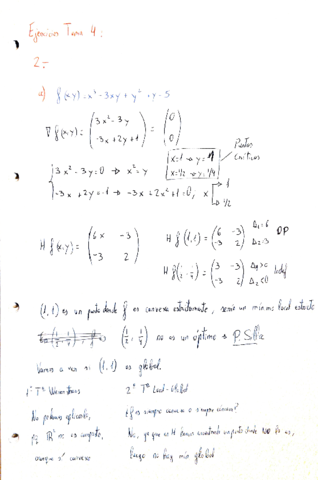 Ejercicios Tema 4:
2.-
a) f(x,y) = x³ - 3xy + y² + y - 5
∇f(x,y) = (3x² - 3y / -3x + 2y + 1) = (0 / 0)
{3x² - 3y = 0 → x² = y
-3x + 2y = -1 → -3x + 2x² + 1 = 0, x → 1, 1/2
x=1 → y=1
x=1/2 → y=1/4
Puntos Críticos
H f(x,y) = (6x -3 / -3 2)
H f(1,1) = (6 -3 / -3 2) Δ₁=6 Δ₂=3 DP
H f(1/2, 1/4) = (3 -3 / -3 2) Δ₁>0 Δ₂<0 Indef
(1,1) es un punto donde f es convexa estrictamente, sería un mínimo local estricto
(1/2, 1/4) no es un óptimo → P. Silla
Vamos a ver si (1,1) es global.
1º Tª Weierstrass
No podemos aplicarlo,
pq ℝ² no es compacto,
aunque sí convexo
2º Tª Local-Global
¿f es siempre cóncava o siempre convexa?
No, ya que en H hemos encontrado un punto donde NO lo es,
luego no hay mín global